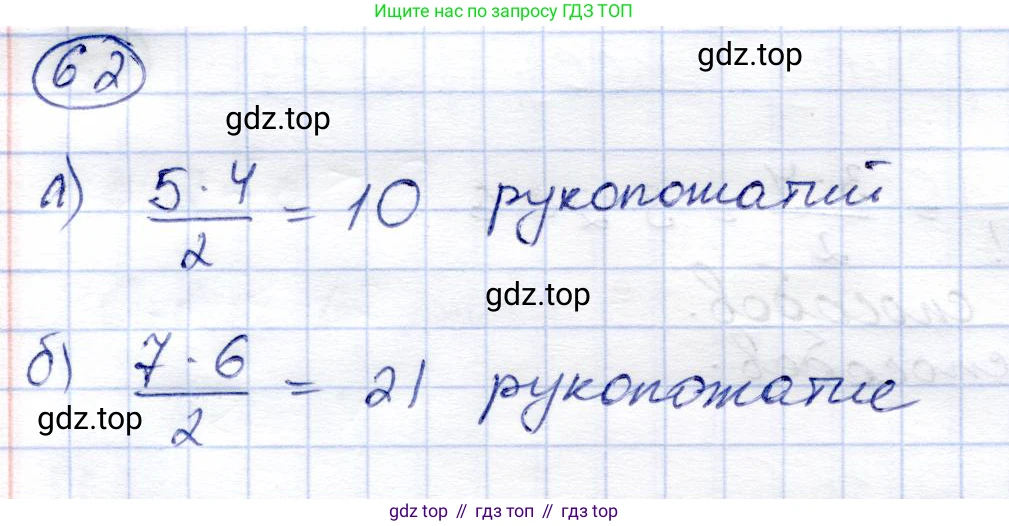 Ищите нас по запросу ГДЗ ТОП
62
gdz.top
gdz.top
а) 5 · 4 / 2 = 10 рукопожатий
gdz.top
б) 7 · 6 / 2 = 21 рукопожатие
gdz.top
gdz.top // гдз топ // gdz top